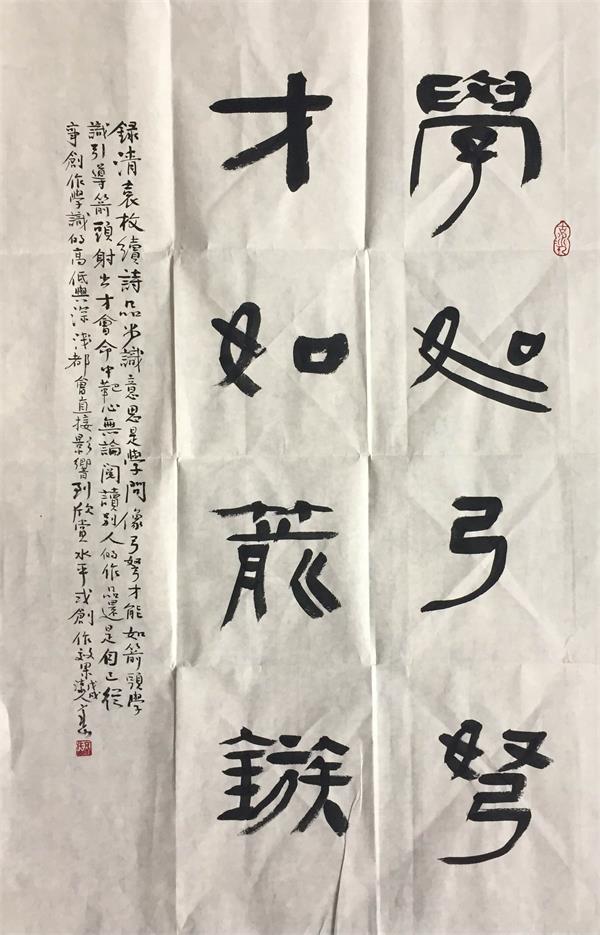 學如弓弩
才如箭鏃
錄清袁枚續詩品尚識意思是學問像弓弩才能如箭頭學
識引導箭頭射出才會命中靶心無論閱讀別人的作品還是自己從
事創作學識的高低與深淺都會直接影響到欣賞水平或創作效果戊戌